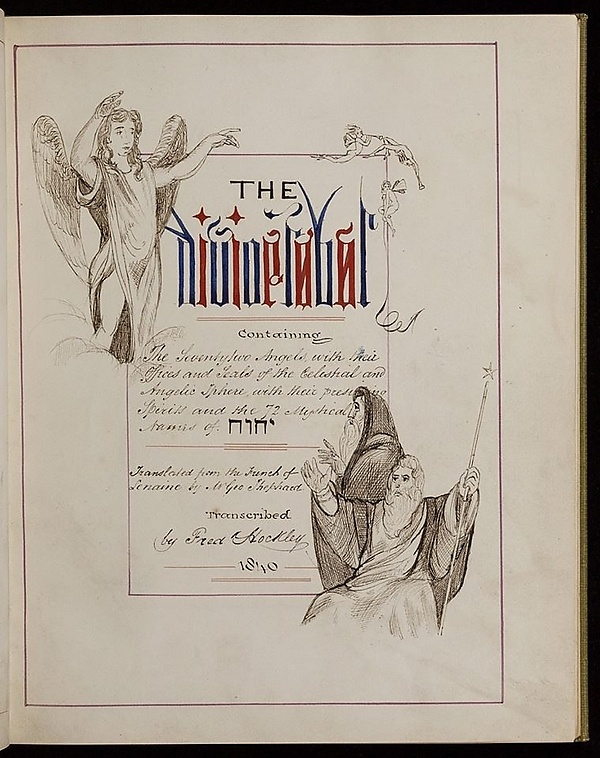 THE
Containing
The Seventytwo Angels, with their
Offices and Seals of the Celestial and
Angelic Sphere, with their
Spirits and the 72 Mystical
Names of. יהוה
Translated from the French of
Lenaine by Mr Geo Shephard
Transcribed
by Fred Hockley
1840